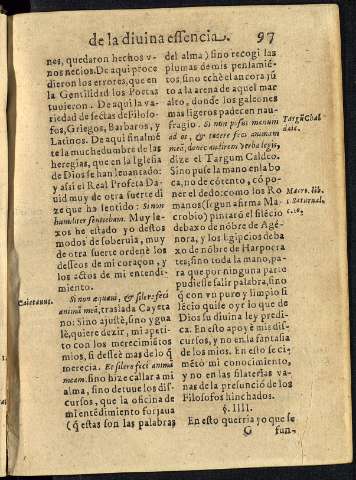 de la diuina essencia. 97
nes, quedaron hechos v-
nos necios. De aqui proce
dieron los errores, que en
la Gentilidad los Poetas
tuuieron. De aqui la va-
riedad de sectas de Filoso-
fos, Griegos, Barbaros, y
Latinos. De aqui finalmē
te la muchedumbre de las
heregias, que en la Iglesia
de Dios se han leuantado:
y assi el Real Profeta Da-
uid muy de otra suerte di
ze que ha sentido: Si non
humiliter sentiebam. Muy le-
xos he estado yo destos
modos de soberuia, muy
de otra suerte ordenè los
desseos de mi coraçon, y
los actos de mi entendi-
miento.
Caietanus.
Si non æquaui, & silere feci
animā meā, traslada Cayeta
no: Sino ajustè, sino ygua
lè, quiere dezir, mi apeti-
to con los merecimiētos
mios, si desseè mas de lo q̄
merecia. Et silere feci animā
meam. sino hize callar a mi
alma, sino detuue los dis-
cursos, que la oficina de
mi entēdimiento forjaua
(q̄ estas son las palabras
del alma) sino recogi las
plumas de mis pensamiē-
tos, sino echè el ancora jū
to a la arena de aquel mar
alto, donde los galeones
mas ligeros padecen nau-
fragio. Si non posui manum
ad os, & tacere feci animam
meā, donec audirem verba legis,
dize el Targum Caldeo.
Targū Chal
daic.
Sino puse la mano en la bo
ca, no de cōtento, cō po-
ner el dedo como los Ro
manos (segun afirma Ma-
crobio) pintarō el silēcio
Macro. lib.
1 Saturnal.
debaxo de nōbre de Age-
nora, y los Egipcios deba
xo de nōbre de Harpocra
tes; sino toda la mano, pa-
ra que por ninguna parte
pudiesse salir palabra, sino
q̄ con vn puro y limpio si
lēcio quise oyr lo que de
Dios su diuina ley predi-
ca. En esto apoyè mis dis-
cursos, y no en la fantasia
de los mios. En esto se ci-
mētò mi conocimiento,
y no en las filaterias va-
nas de la presunciō de los
Filosofos hinchados.
§. IIII.
En esto querria yo que se
G fun-